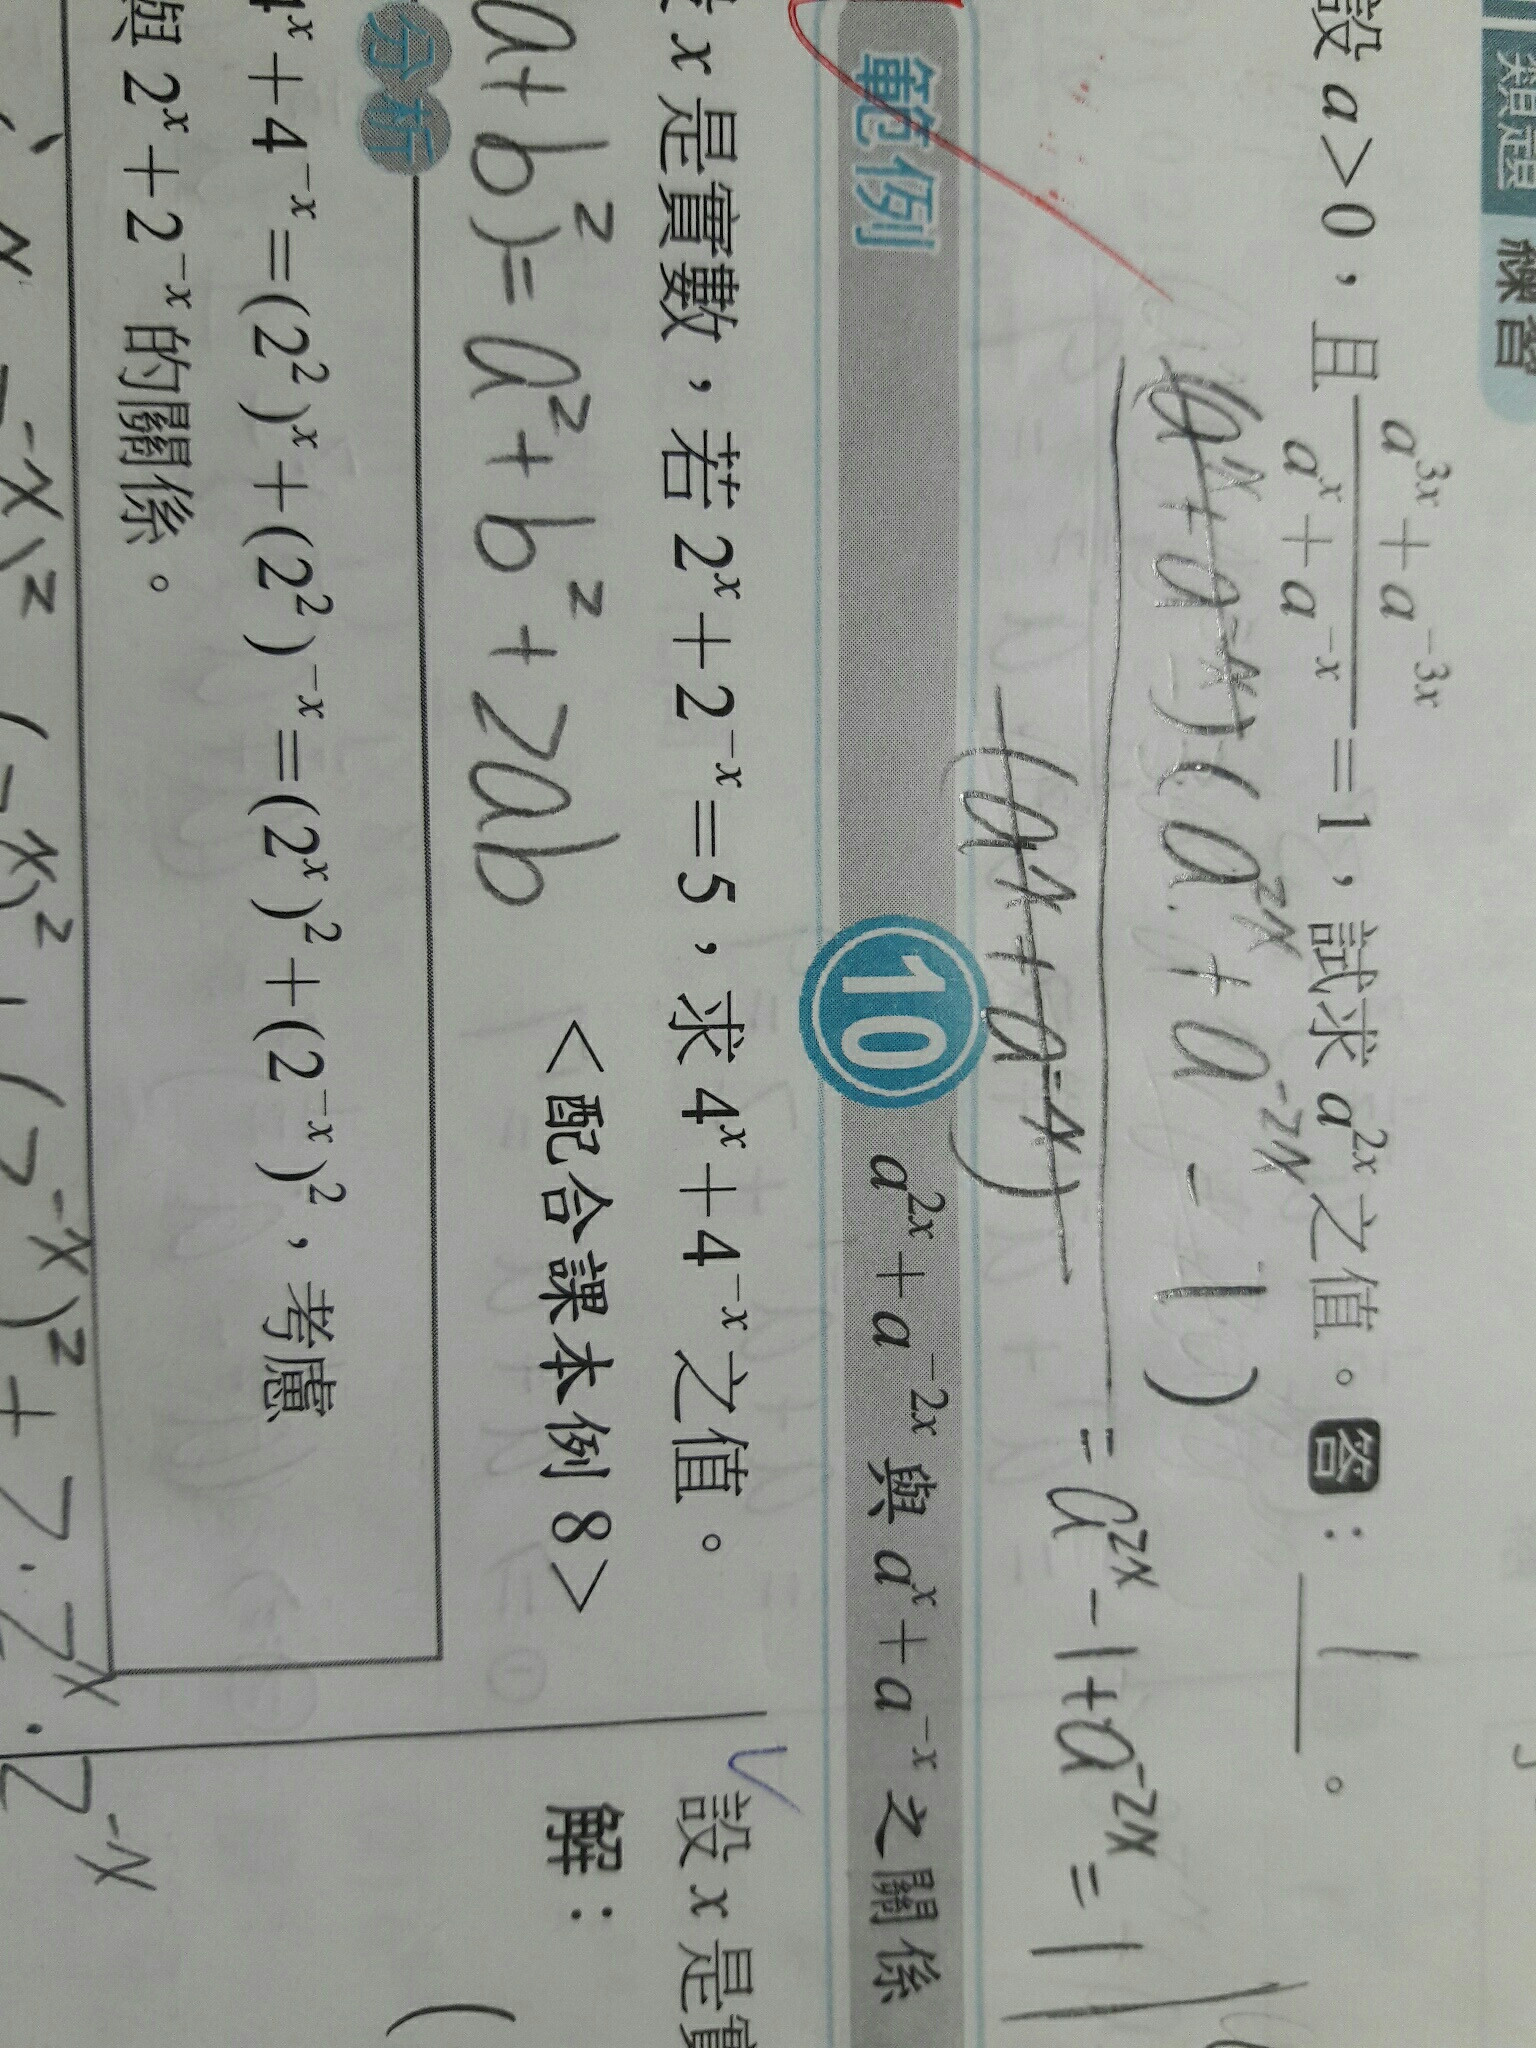 類題 練習
設 a>0，且 (a^{3x}+a^{-3x})/(a^x+a^{-x})=1，試求 a^{2x} 之值。答：1。
(a^x+a^{-x})(a^{2x}+a^{-2x}-1)
(a^x+a^{-x})
=a^{2x}-1+a^{-2x}=1
範例 10 a^{2x}+a^{-2x} 與 a^x+a^{-x} 之關係
x 是實數，若 2^x+2^{-x}=5，求 4^x+4^{-x} 之值。
<配合課本例 8>
a+b)^2=a^2+b^2+2ab
分析
4^x+4^{-x}=(2^2)^x+(2^2)^{-x}=(2^x)^2+(2^{-x})^2，考慮
與 2^x+2^{-x} 的關係。
(2^{-x})^2+2·2^x·2^{-x}
設 x 是實
解：
(